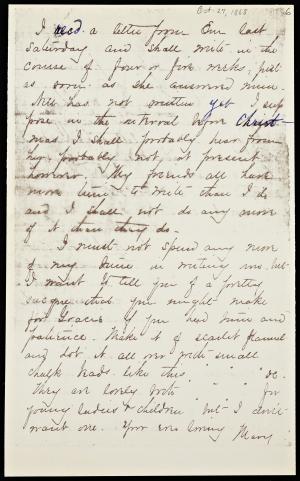 Oct-27, 1868
I recd. a letter from Em last
Saturday and shall write in the
course of four or five weeks, just
as soon as she answered mine.
Nell has not written yet I sup
pose in the interval before Christ-
mas I shall probably hear from
her, probably not, at present
however. My friends all have
more time to write than I do
and I shall not do any more
of it than they do.
I must not spend any more
of my time in writing now, but
I want to tell you of a pretty
sacque that you might make
for Gracie if you had time and
patience. Make it of scarlet flannel
and dot it all over with small
chalk beads like this " " " &c.
They are lovely both " " " for
young ladies & children but I don't
want one. Your ever loving Mary